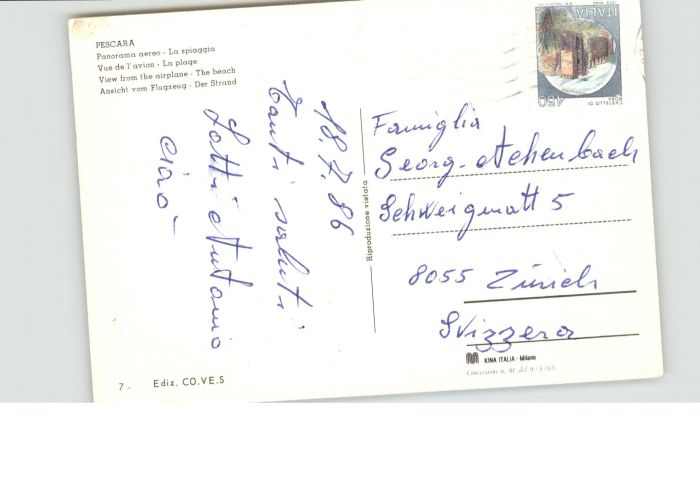 PESCARA
Panorama aereo - La spiaggia
Vue de l'avion - La plage
View from the airplane - The beach
Ansicht vom Flugzeug - Der Strand
18.7.86
Tanti saluti
Lotti e Antonio
ciao
Riproduzione vietata
ITALIA
450
CASTELLO DI
Famiglia
Georg. Achenbach
Schweigmatt 5
8055 Zürich
Svizzera
KINA ITALIA - Milano
Concessione n. 91 del 9/3/65
7 - Ediz. CO.VE.S